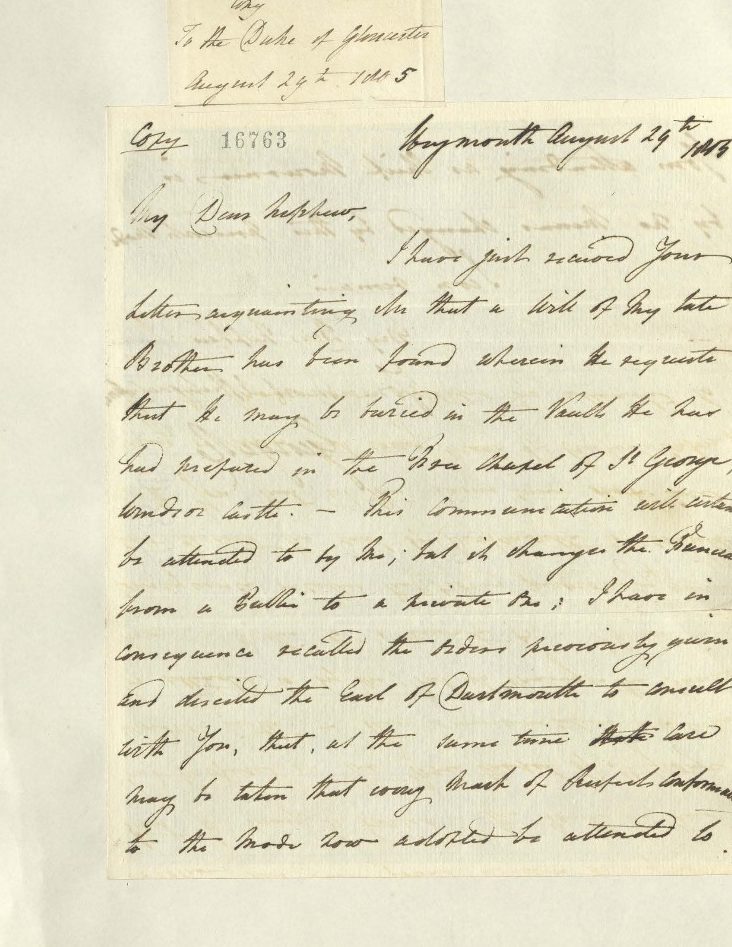 Copy
To the Duke of Gloucester
August 29th. 1805
Copy 16763 Weymouth August 29th 1805
My Dear Nephew,
I have just received Your
Letter acquainting Me that a Will of My late
Brother has been found wherein He requests
that He may be buried in the Vault He has
had prepared in the Free Chapel of St. George,
Windsor Castle. – This communication will
be attended to by Me; but it changes the
from a Public to a private One; I have in
consequence recalled the orders previously given
and directed the Earl of Dartmouth to consult
with You, that, at the same time care
may be taken that every mark of Respect
to the mode now adopted be attended to.